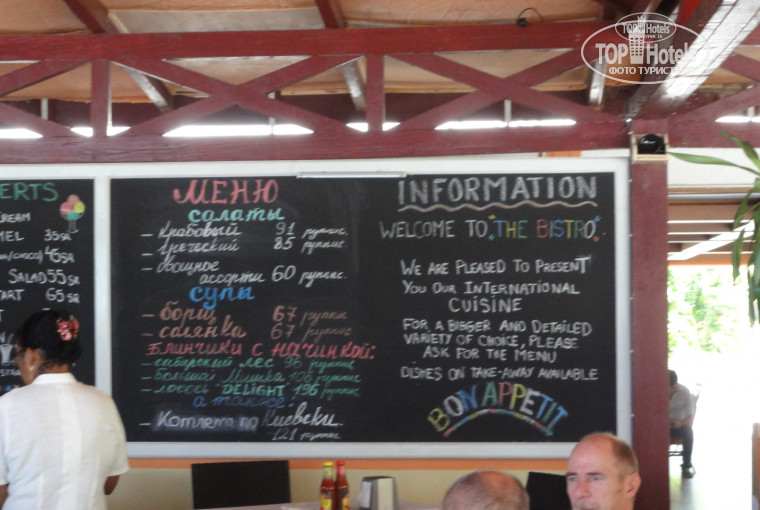 TOP Hotels
ТУРИСТА
TOP HOTELS
ФОТО ТУРИСТ
ERTS
CREAM
MEL 35SR
45SR
SALAD 55SR
TART 65SR
МЕНЮ
САЛАТЫ
- Крабовый 91 руппис.
- Греческий 85 руппис
- Овощное
ассорти 60 руппис.
СУПЫ
- БОРЩ 67 руппис
- СОЛЯНКА 67 руппис
БЛИНЧИКИ С НАЧИНКОЙ:
- сибирский лес 96 руппис
- больша Мишка 106 руппис
- лосось DELIGHT 196 руппис
а также:
- Котлета по Киевски.
121 руппис
INFORMATION
WELCOME TO "THE BISTRO"
WE ARE PLEASED TO PRESENT
YOU OUR INTERNATIONAL
CUISINE
FOR A BIGGER AND DETAILED
VARIETY OF CHOICE, PLEASE
ASK FOR THE MENU
DISHES ON TAKE-AWAY AVAILABLE
BON APPETIT